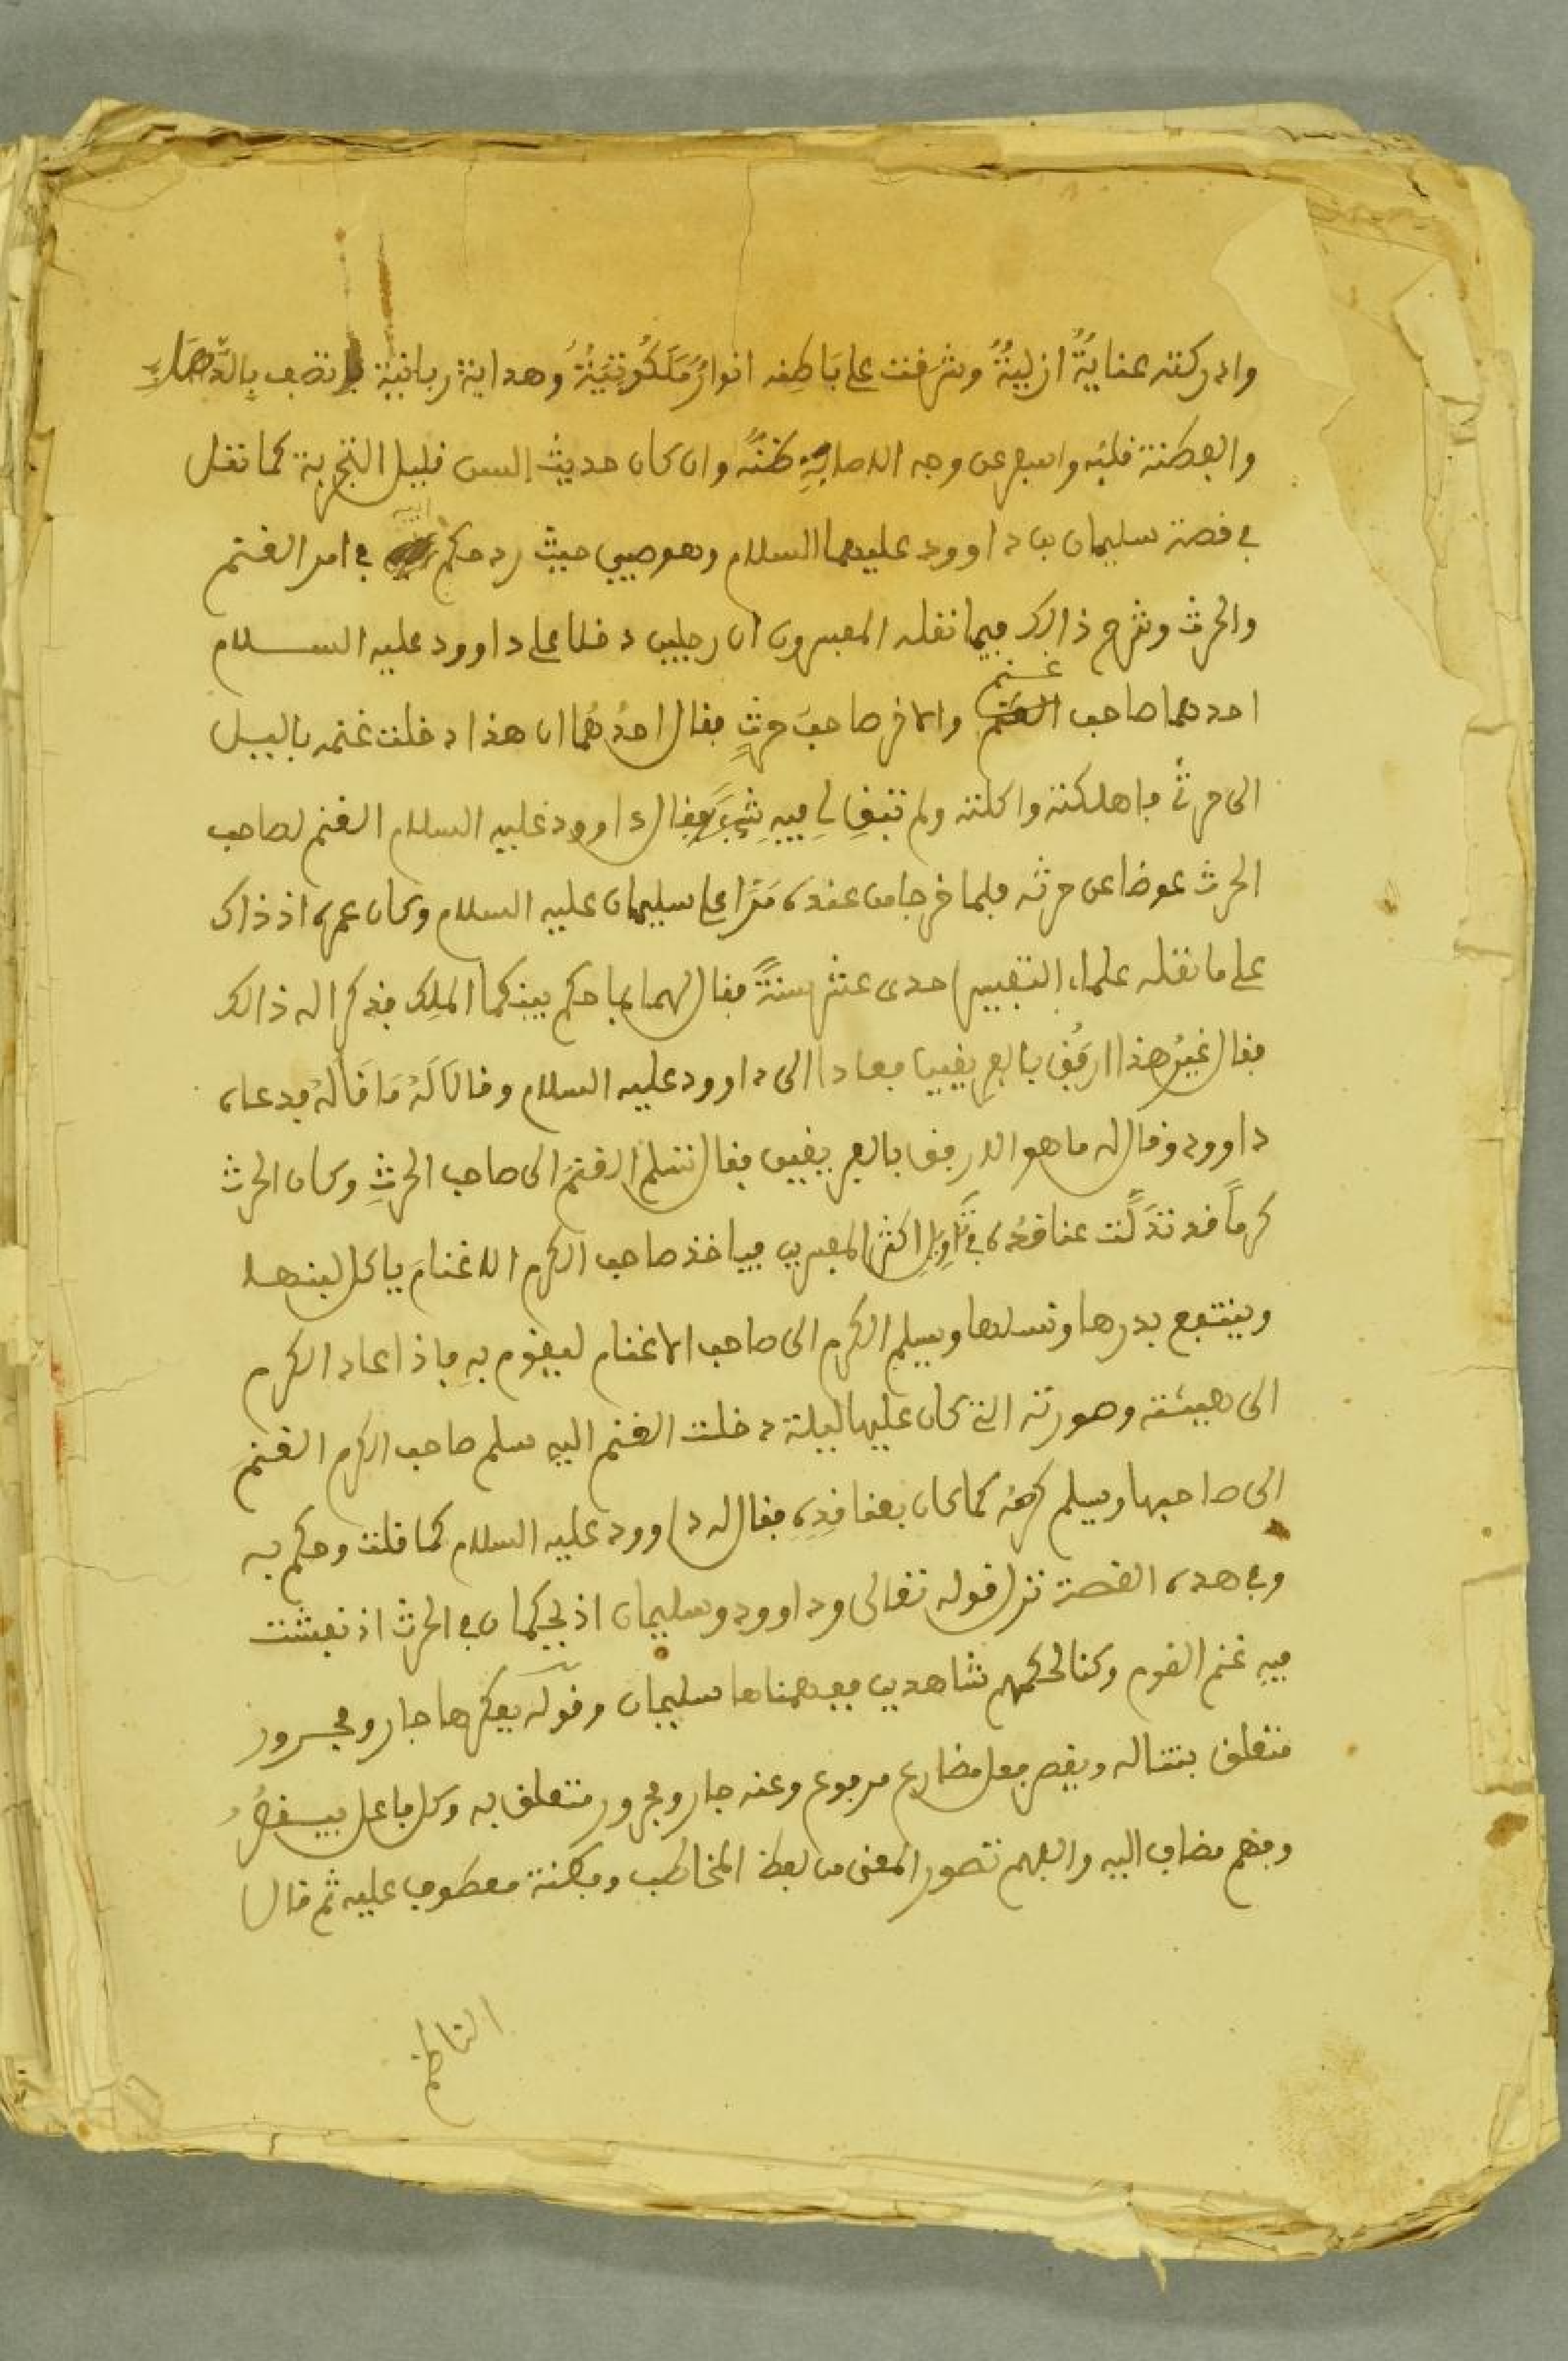 وادركته عنايةٌ ازليةٌ وشرفت على باطنه انوارٌ مَلَكُوتيَةٌ وهداية ربانية اتصف بالدَّهاءِ
والفطنة قلبُه واسفر عن وجه الاصابةِ ظنُّه وان كان حديث السن قليل التجربة كما نقل
في قصة سليمان بن داوود عليهما السلام وهو صبي حيث رد حكم في امر الغنم
والحرث وشرح ذالك فيما نقله المفسرون ان رجلين دخلا على داوود عليه السلام
احدهما صاحب غنم والاخر صاحبَ حرثٍ فقال احدُهما ان هذا دخلت غنمه بالليل
الى حرثي فاهلكته واكلته ولم تبقِ لي فيهِ شيئا فقال داوود عليه السلام الغنم لصاحب
الحرث عوضا عن حرثه فلما خرجا من عنده مَرَّا على سليمان عليه السلام وكان عمره اذ ذاك
على ما نقله علماء التفسير احدى عشر سنةً فقال لهما بما حكم بينكما الملِك فذكرا له ذالك
فقال غيرُ هذا ارفقُ بالفريقين فعادا الى داوود عليه السلام وقالا لَهُ مَا قَالَهُ فدعاه
داوود وقال له ما هو الارفق بالفريقين فقال تسلم الغنمَ الى صاحب الحرثِ وكان الحرث
كرماً قد تدَلَّت عناقدُه في قول اكثر المفسرين فياخذ صاحب الكرم الاغنامَ ياكل لبنها
وينتفع بدرها ونسلها ويسلم الكرم الى صاحب الاغنام ليقوم بهِ فاذا عاد الكرم
الى هيئته وصورته التي كان عليها ليلة دخلت الغنم اليه سلم صاحب الكرم الغنم
الى صاحبها ويسلم كرمُه كما كان بعناقدِه فقال له داوود عليه السلام كما قلت وحكم به
وفي هده القصة نزل قوله تعالى وداوود وسليمان اذ يحكمان في الحرث اذ نفشت
فيهِ غنم القوم وكنا لحكمهم شاهدين ففهمناها سليمان وقوله بفكرها جار ومجرور
متعلق بتناله ويقصر فعل مضارع مرفوع وعنه جار ومجرور متعلق به وكل فاعل بيقصُرُ
وفهم مضاف اليه والفهم تصور المعنى من لفظ المخاطب وفطنة معطوف عليه ثم قال
الناظم